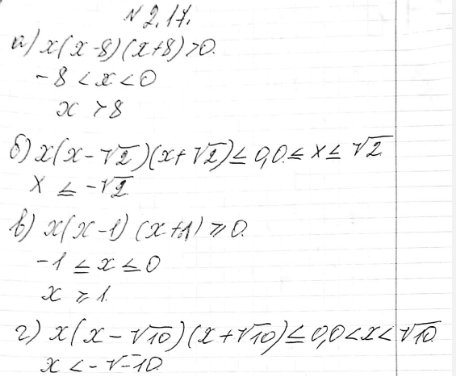 №2.17.
а) x(x-8)(x+8)>0.
-8<x<0
x>8
б) x(x-√2)(x+√2)≤0, 0≤x≤√2
x≤-√2
в) x(x-1)(x+1)≥0.
-1≤x≤0
x≥1.
г) x(x-√10)(x+√10)≤0, 0<x<√10.
x<-√-10.